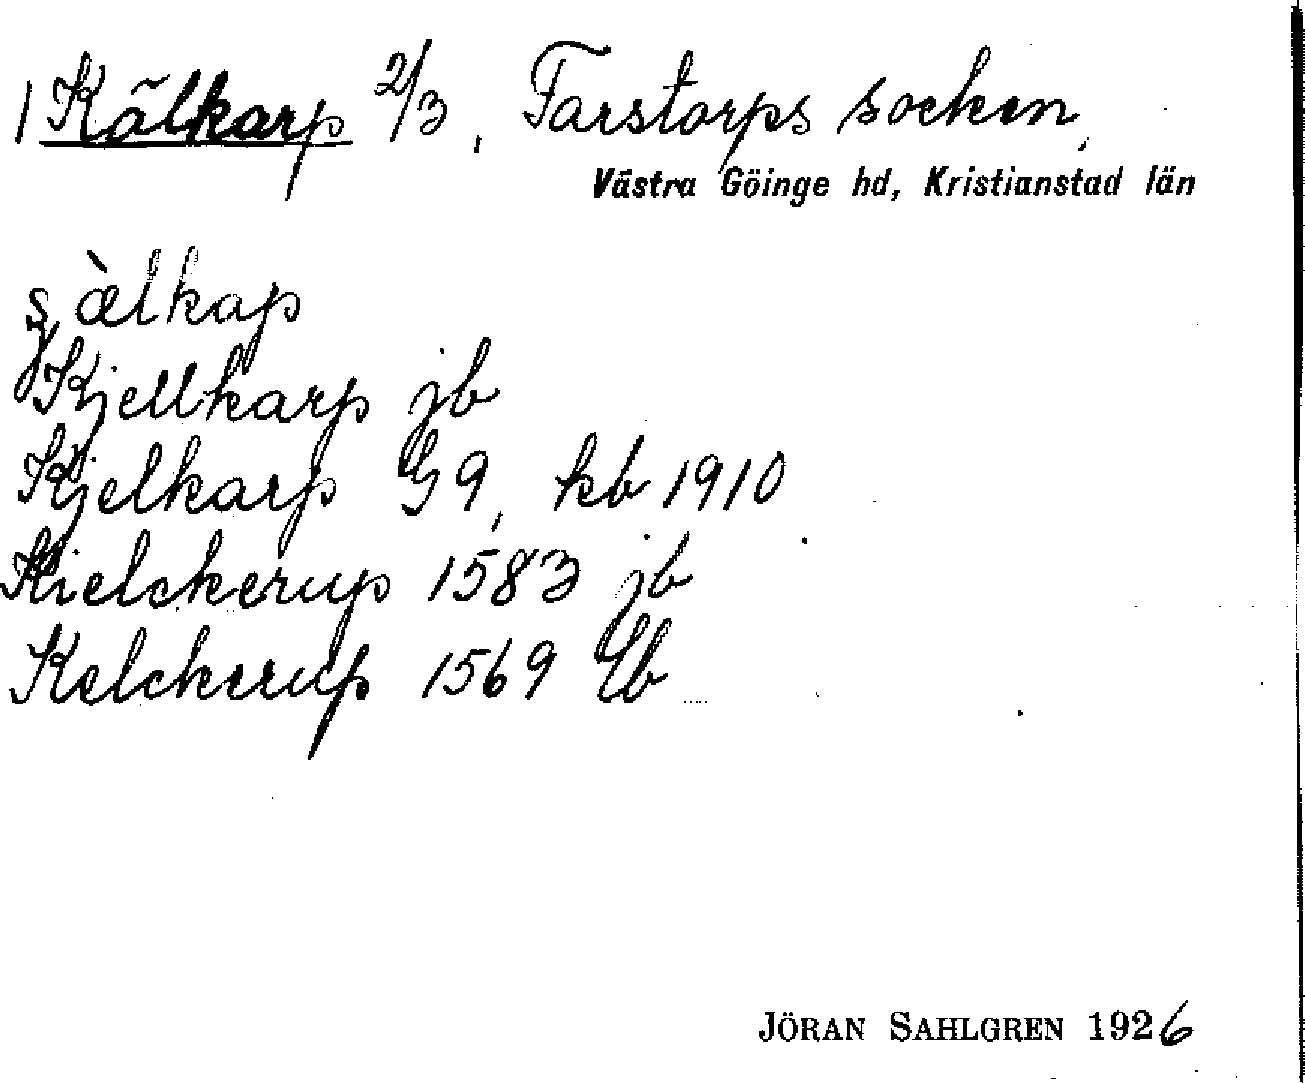 1 Kälkarp 2/3, Farstorps socken,
Västra Göinge hd, Kristianstad län
ʂæ̀lkap
Kjellkarp jb
Kjelkarp G9, kb 1910
Kielckerup 1583 jb
Kelckerup 1569 Lb
JÖRAN SAHLGREN 1926